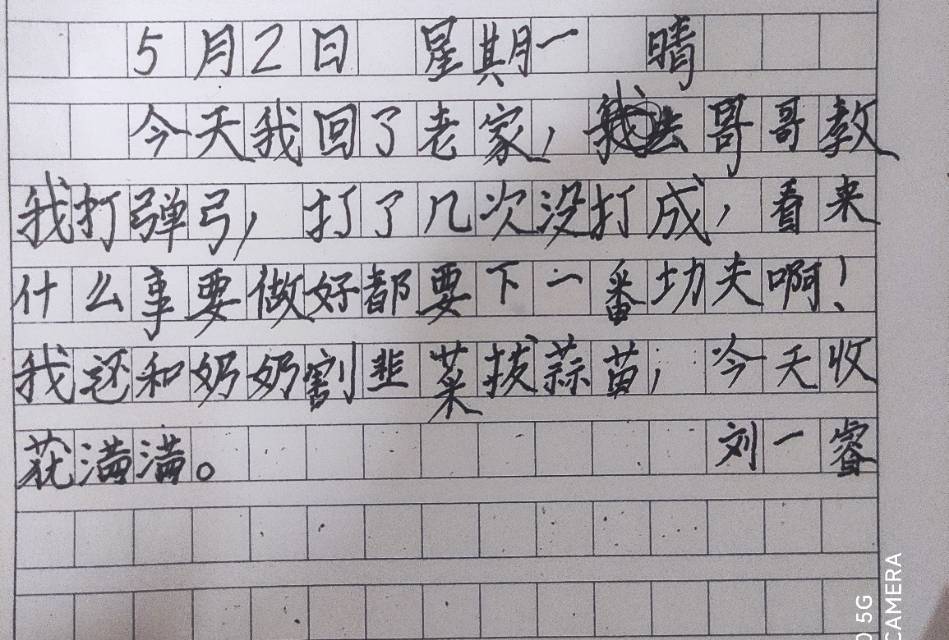 5月2日 星期一 晴
今天我回了老家，哥哥教
我打弹弓，打了几次没打成，看来
什么事要做好都要下一番功夫啊！
我还和奶奶割韭菜拔蒜苗；今天收
获满满。 刘一睿
5G
CAMERA